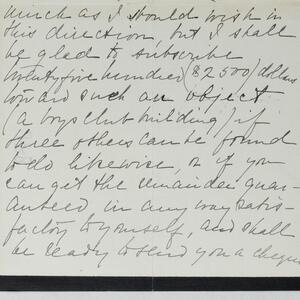 much as I should wish in
this direction, but I shall
be glad to subscribe
twenty five hundred ($2500) dollars
toward such an object
(a boys club building) if
three others can be found
to do likewise, or if you
can get the remainder guar-
anteed in any way satis-
factory to yourself, and shall
be ready to send you a cheque